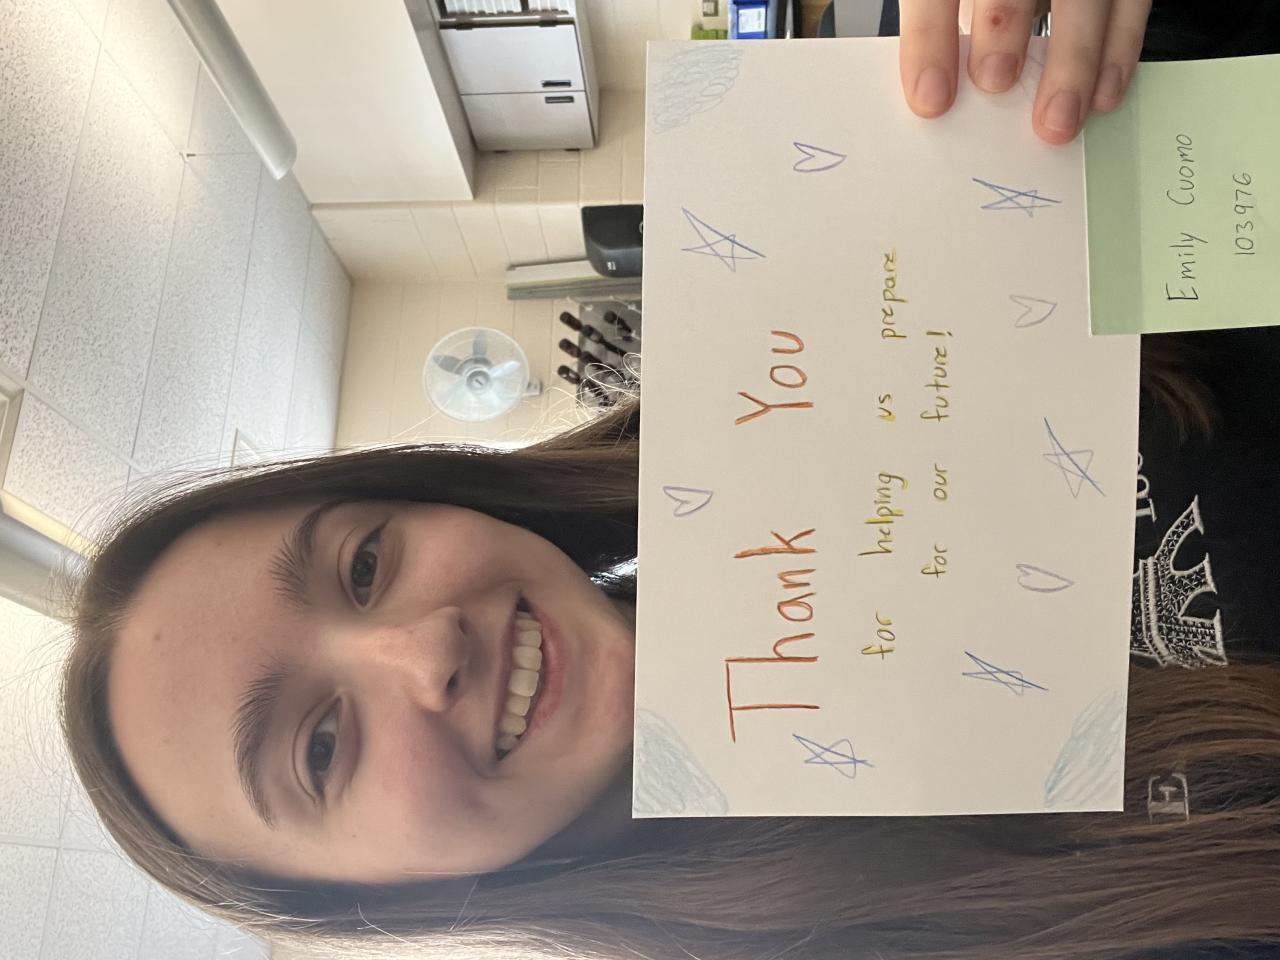 Thank You
for helping us prepare
for our future!
Emily Cuomo
103976